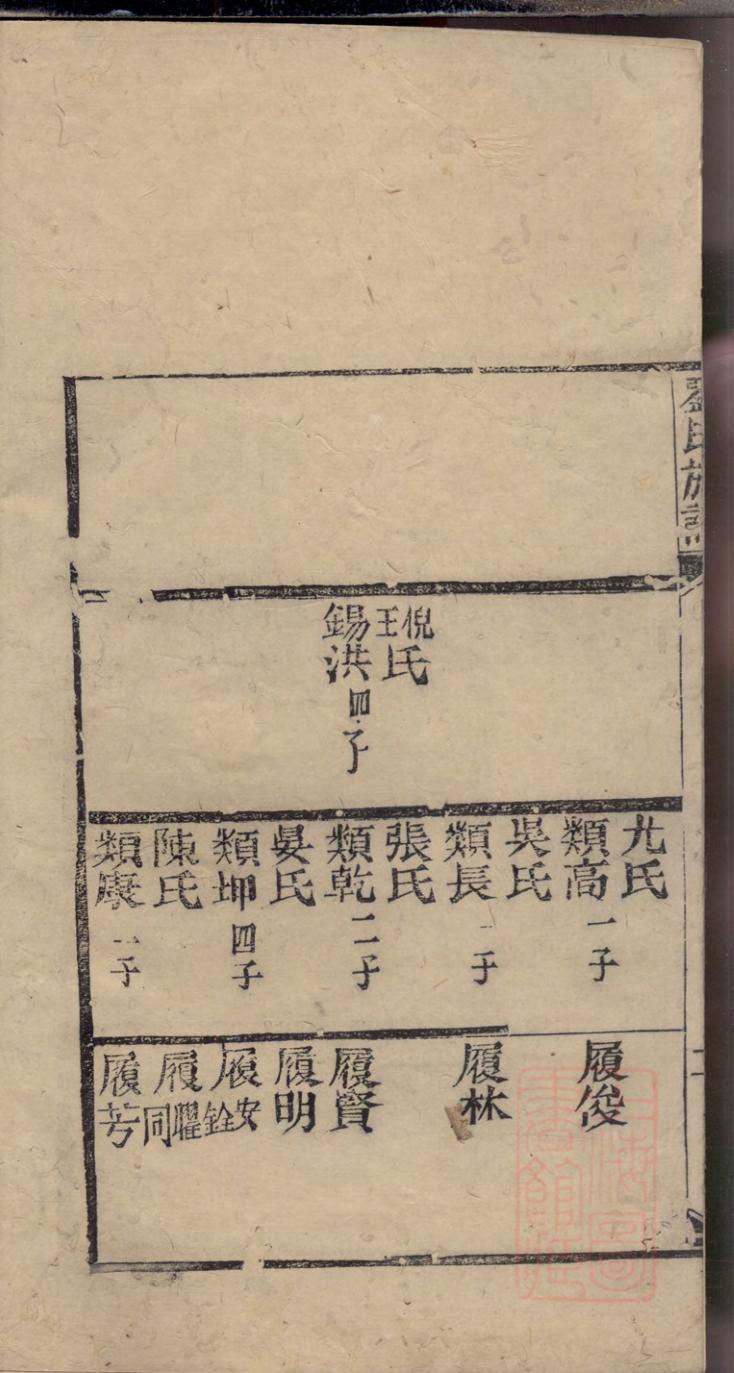 氏族譜
倪王氏
錫洪四子
尤氏
類高一子
吳氏
類長一子
張氏
類乾二子
晏氏
類坤四子
陳氏
類康二子
履俊
履林
履賢
履明
履安銓
履曜同
履芳
二
上海圖書館藏